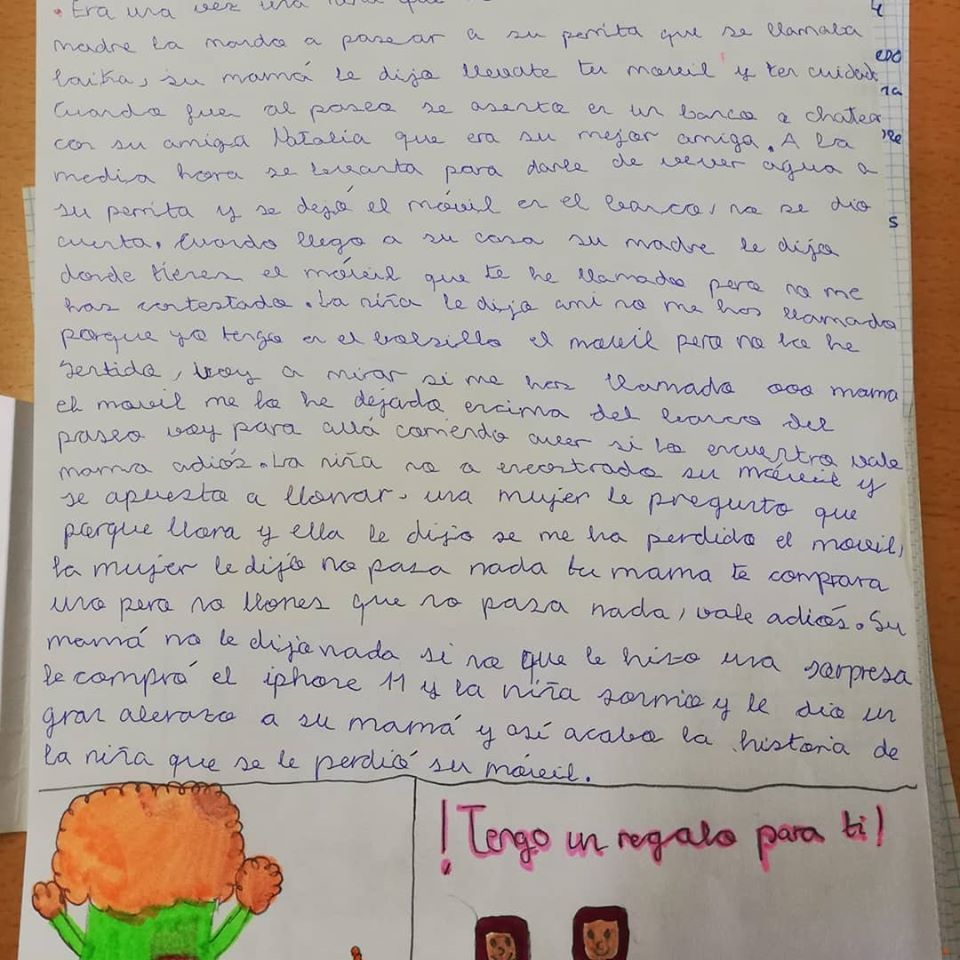 • Era una vez una niña que
madre la mando a pasear a su perrita que se llamaba
laika, su mamá le dijo llevate tu movil y ten cuidad
Cuando fue al paseo se asento en un banco a chatear
con su amiga Natalia que era su mejor amiga. A la
media hora se levanta para darle de vever agua a
su perrita y se dejó el móvil en el banco, no se dio
cuenta. Cuando llego a su casa su madre le dijo
donde tienes el móvil que te he llamado pero no me
has contestado. La niña le dijo ami no me has llamado
porque yo tengo en el bolsillo el movil pero no lo he
sentido, voy a mirar si me has llamado ooo mama
el movil me lo he dejado encima del banco del
paseo voy para allá corriendo aver si lo encuentro vale
mama adiós. La niña no a encontrado su móvil y
se apuesto a llorrar. una mujer le pregunto que
porque llora y ella le dijo se me ha perdido el movil,
la mujer le dijo no pasa nada tu mama te comprara
uno pero no llores que no pasa nada, vale adiós. Su
mamá no le dijo nada si no que le hizo una sorpresa
le compró el iphone 11 y la niña sonrrio y le dio un
gran abrazo a su mamá y así acabo la historia de
la niña que se le perdió su móvil.
¡Tengo un regalo para ti!